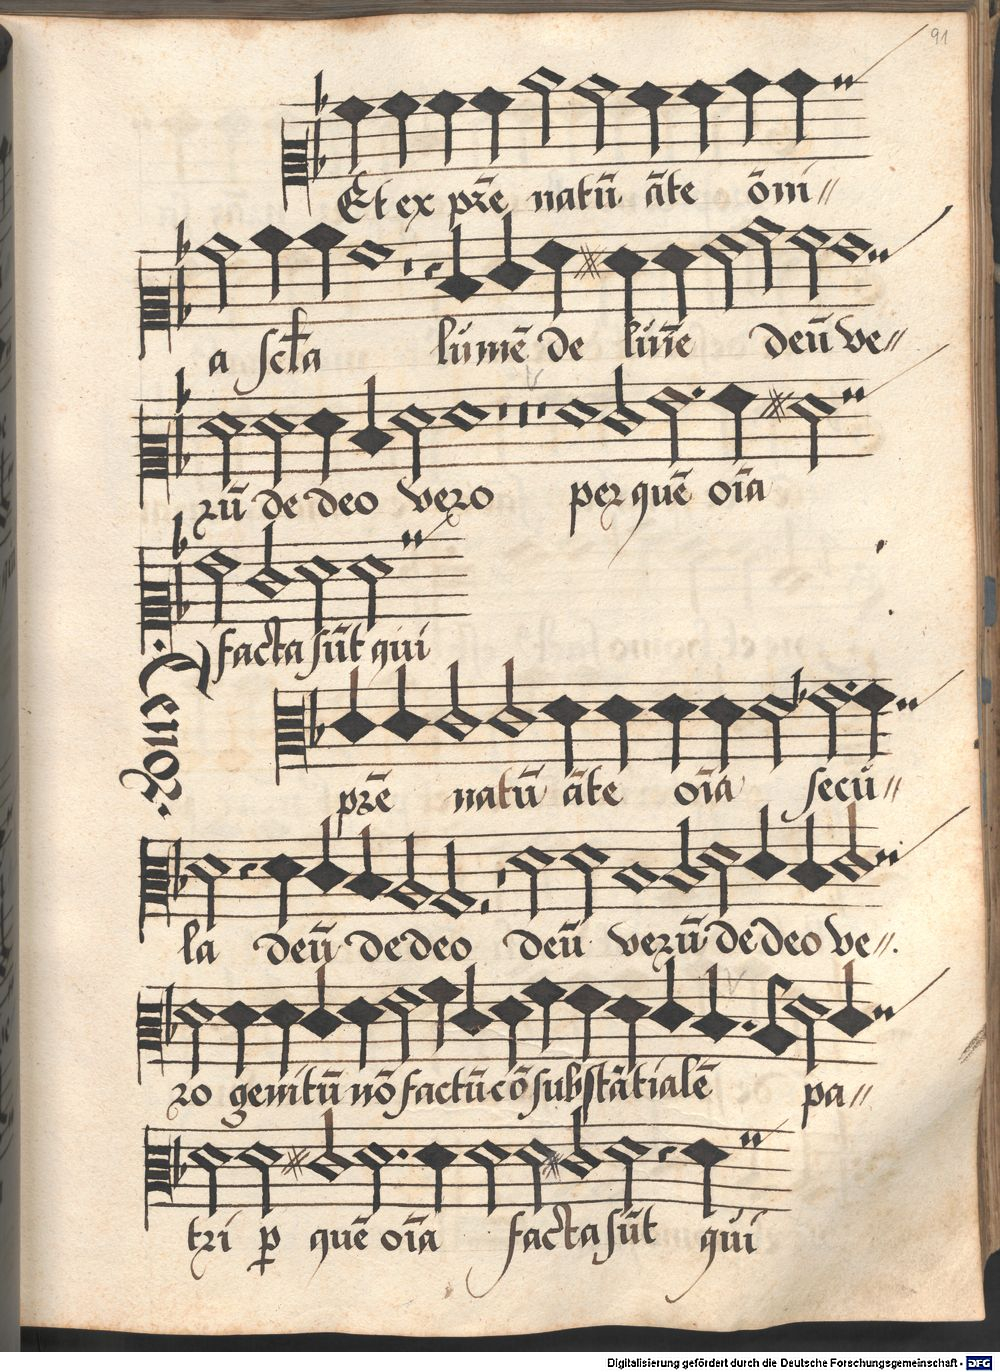 91
Et ex pr̄e natū āte ōni//
a sct̄a lumē de lun̄e deū ve//
rū de deo vero per quē oīa
facta sūt qui
Tenor
pr̄e natū āte oīa secu//
la deū de deo deū verū de deo ve//.
ro genitū nō factū cōsubstātialē pa//
tri p̱ quē oīa facta sūt qui
Digitalisierung gefördert durch die Deutsche Forschungsgemeinschaft - DFG